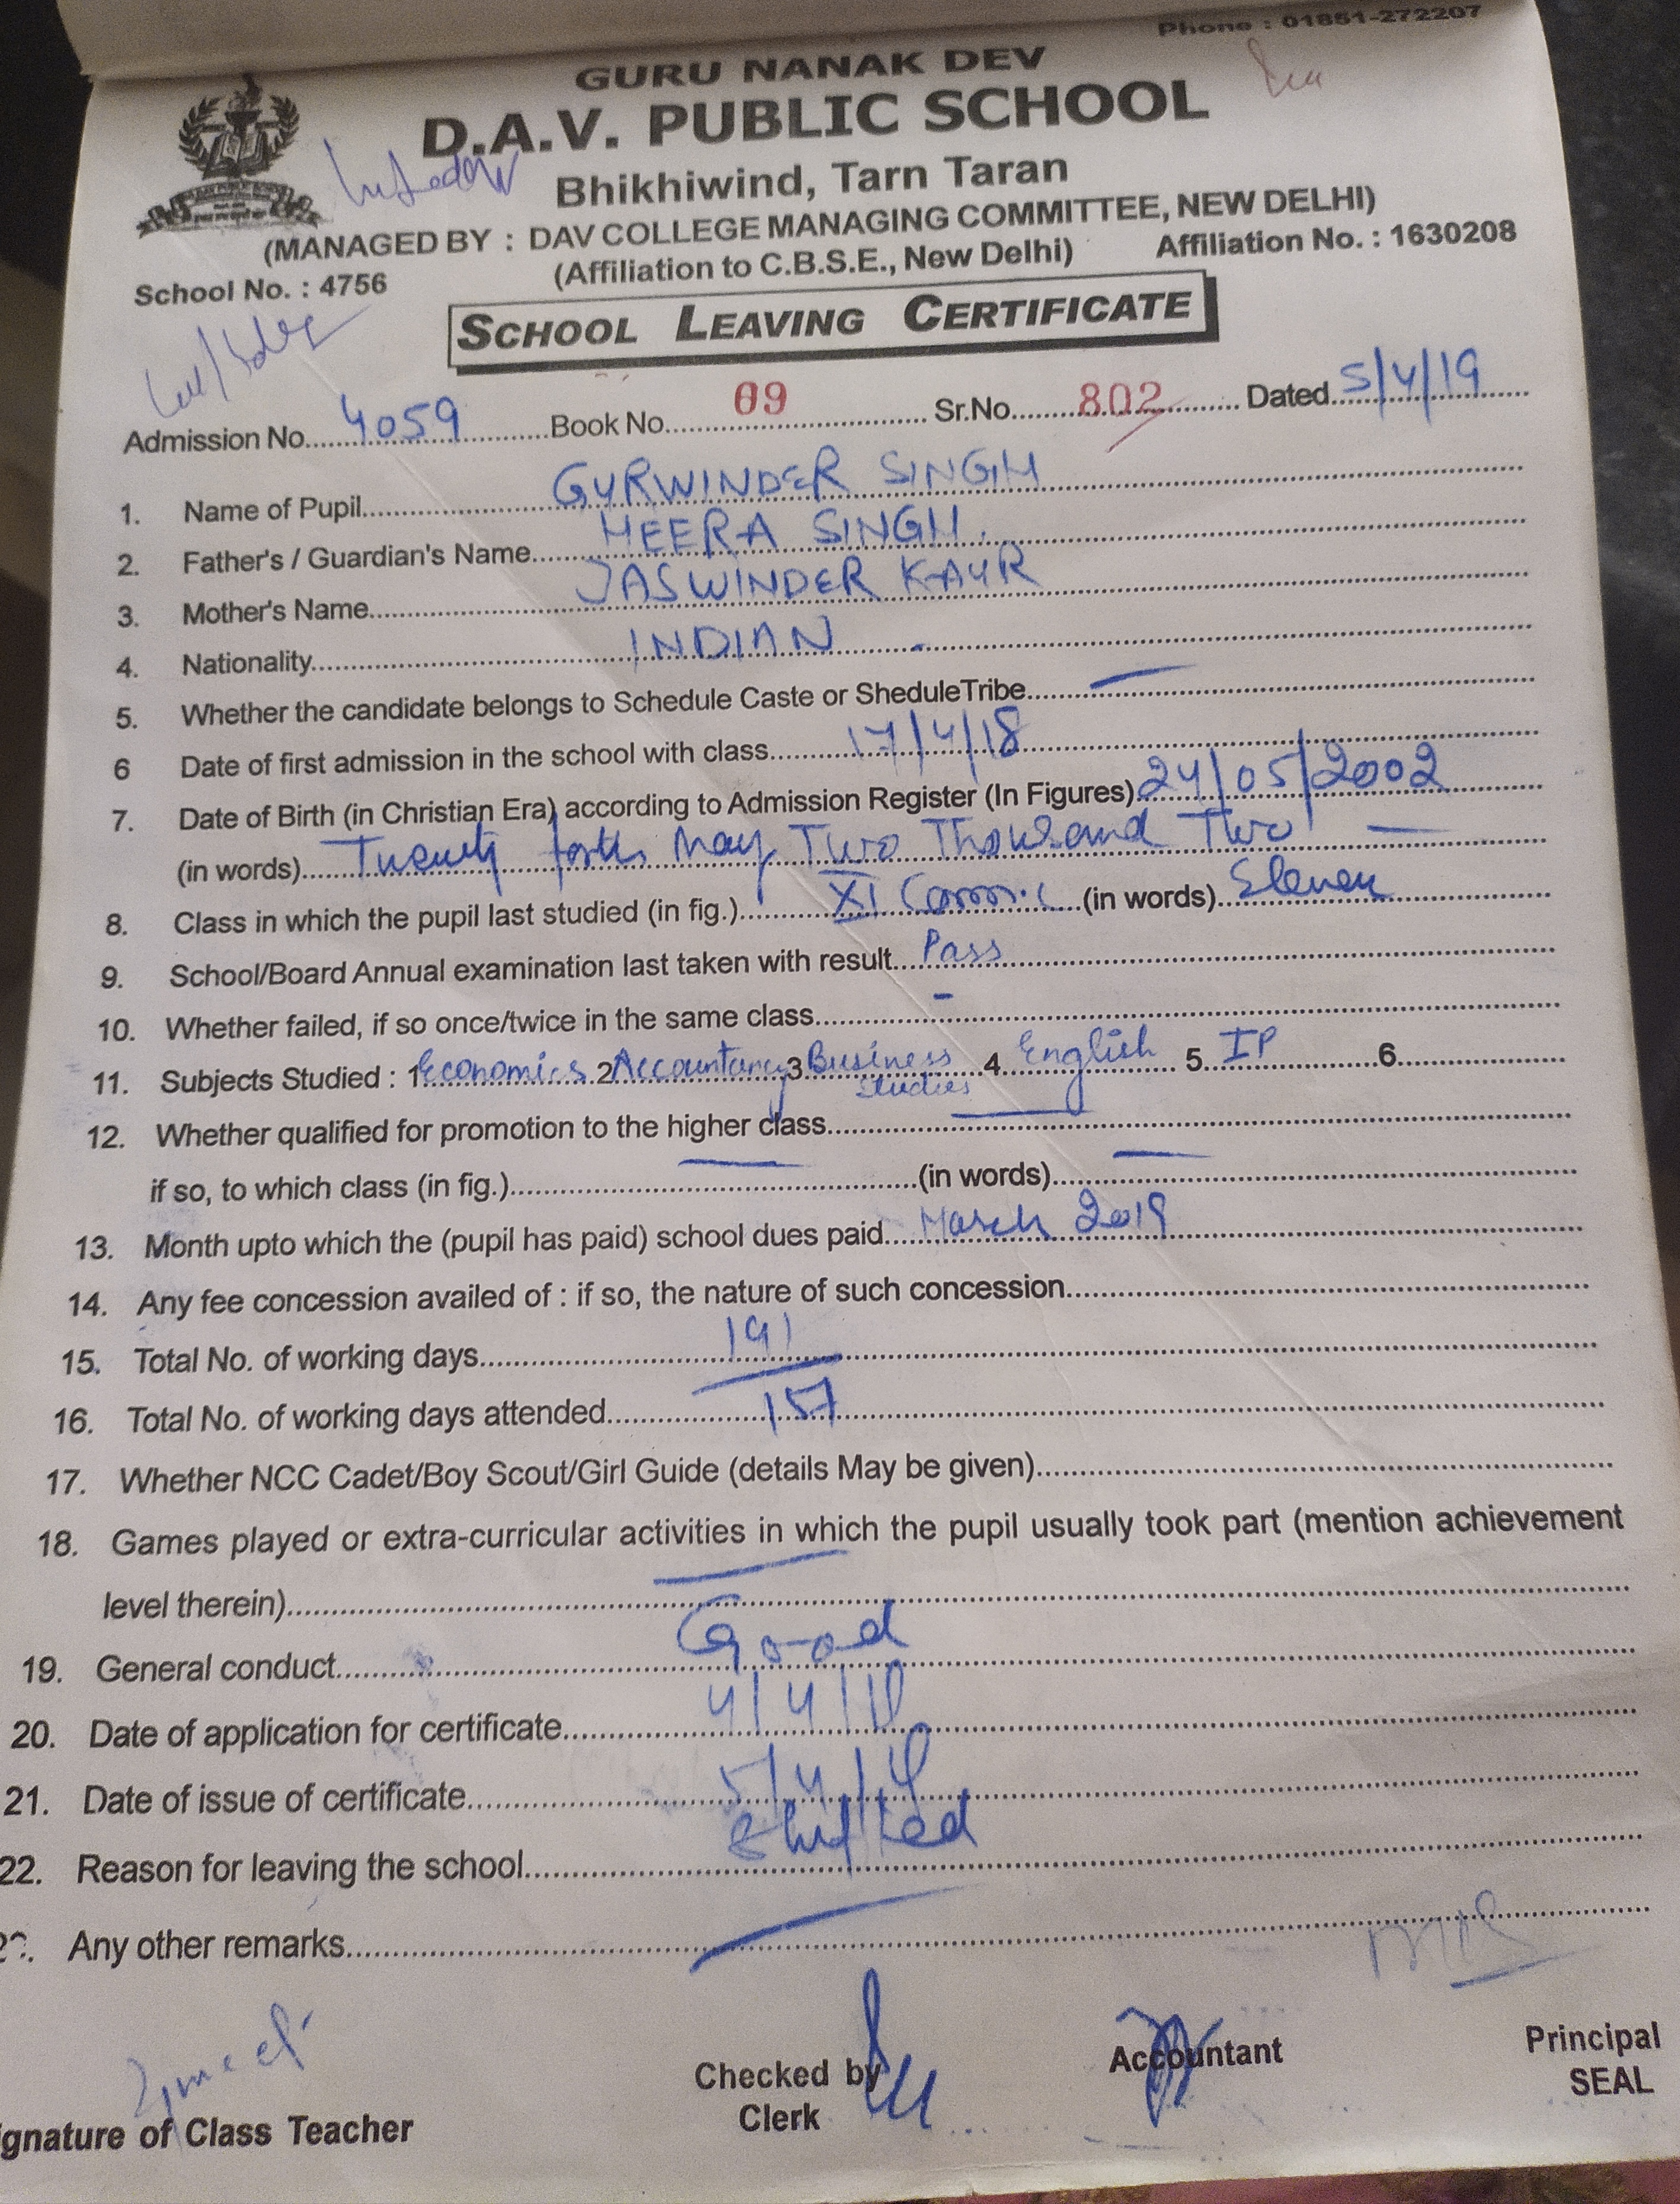 Phone : 01851-272207
GURU NANAK DEV
D.A.V. PUBLIC SCHOOL
Bhikhiwind, Tarn Taran
(MANAGED BY : DAV COLLEGE MANAGING COMMITTEE, NEW DELHI)
School No. : 4756 (Affiliation to C.B.S.E., New Delhi) Affiliation No. : 1630208
SCHOOL LEAVING CERTIFICATE
Admission No. 4059 Book No. 09 Sr.No. 802 Dated 5/4/19
1. Name of Pupil GURWINDER SINGH
2. Father's / Guardian's Name HEERA SINGH.
3. Mother's Name JASWINDER KAUR
4. Nationality INDIAN
5. Whether the candidate belongs to Schedule Caste or SheduleTribe —
6 Date of first admission in the school with class 17/4/18
7. Date of Birth (in Christian Era) according to Admission Register (In Figures) 24/05/2002
(in words) Twenty forth May Two Thousand Two —
8. Class in which the pupil last studied (in fig.) XI (in words) Eleven
9. School/Board Annual examination last taken with result Pass
10. Whether failed, if so once/twice in the same class -
11. Subjects Studied : 1 Economics 2 Accountancy 3 Business Studies 4. English 5. IP 6.
12. Whether qualified for promotion to the higher class —
if so, to which class (in fig.) — (in words) —
13. Month upto which the (pupil has paid) school dues paid March 2019
14. Any fee concession availed of : if so, the nature of such concession
15. Total No. of working days 191
16. Total No. of working days attended 157
17. Whether NCC Cadet/Boy Scout/Girl Guide (details May be given)
18. Games played or extra-curricular activities in which the pupil usually took part (mention achievement
level therein) —
19. General conduct Good
20. Date of application for certificate 4/4/19
21. Date of issue of certificate 5/4/19
22. Reason for leaving the school Shifted
Any other remarks —
Checked by Accountant Principal
Clerk SEAL
ignature of Class Teacher